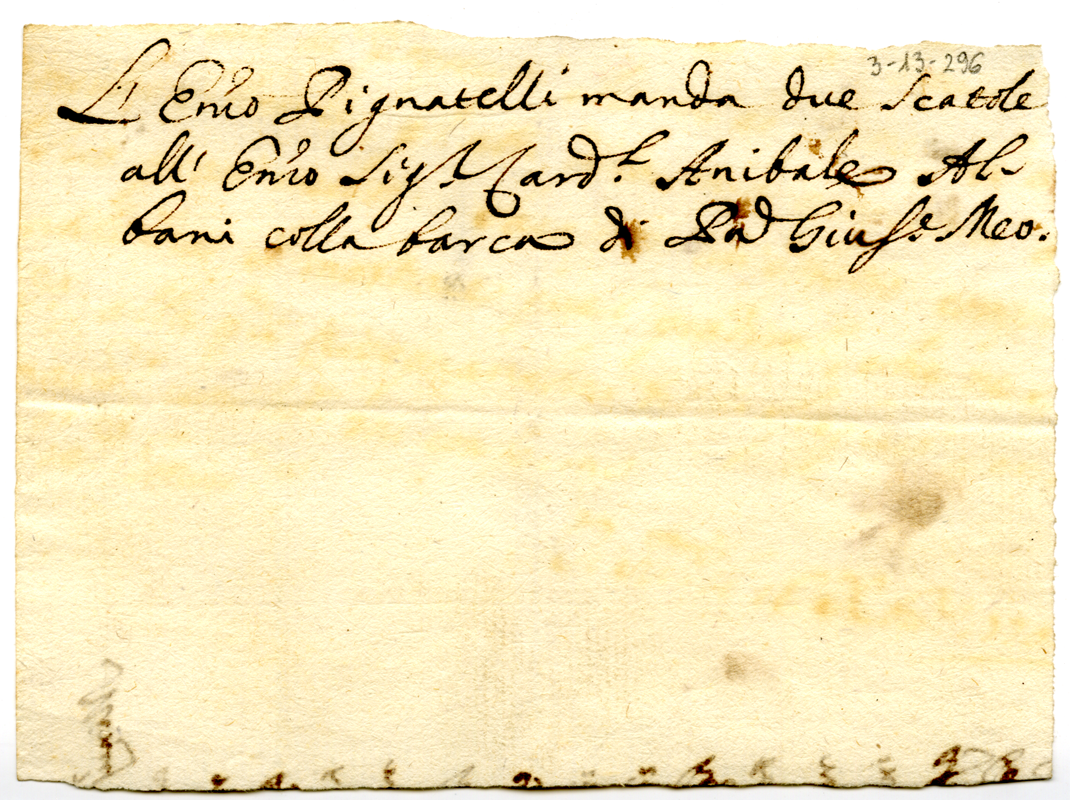 3-13-296
L' Em̃o Pignatelli manda due Scatole
all' Em̃o Sig.r Card.l Anibale Al-
bani colla barca di Pad Gius.e Meo.